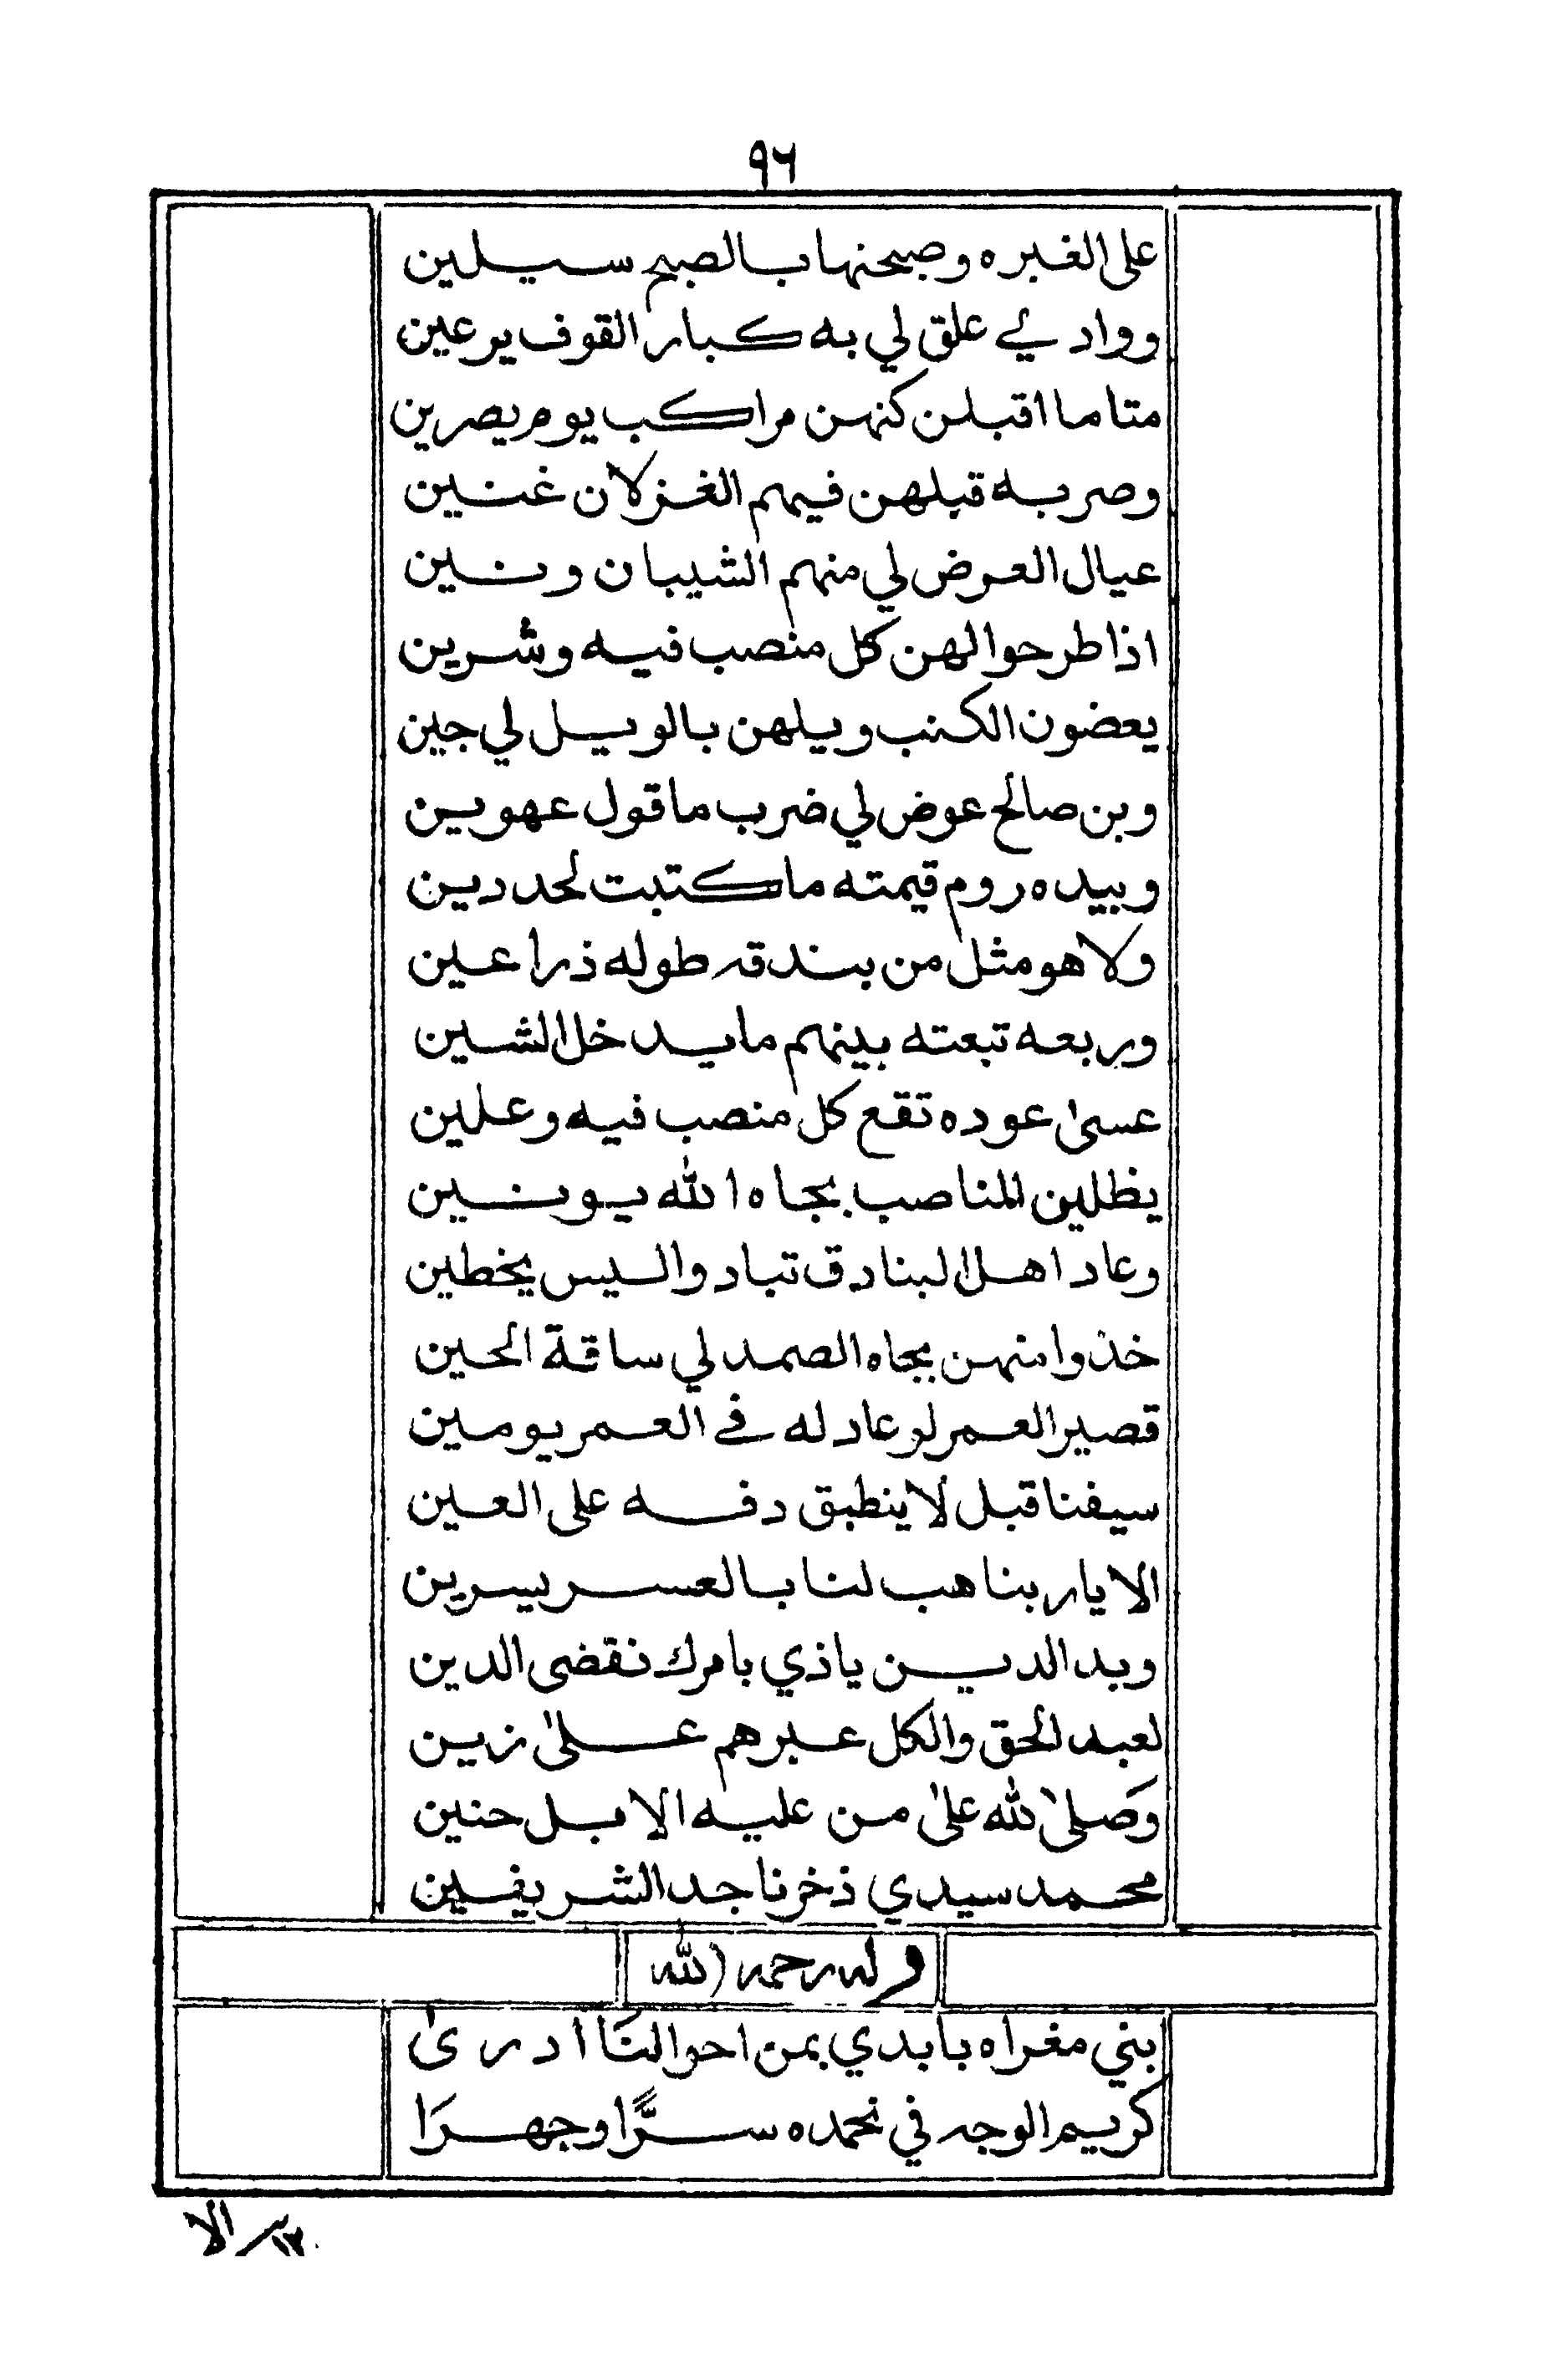 ٩٦
على الغبره وصبحنها بالصبح سيلين
ووادي علق لي به كبار القوف يرعين
متا ما اقبلن كنهن مراكب يوم يصرين
وصربه قبلهن فيهم الغزلان غنين
عيال العرض لي منهم الشيبان ونين
اذا طرحوا لهن كل منصب فيه وشرين
يعضون الكنب ويلهن بالويل لي جين
وبن صالح عوض لي ضرب ما قول عهوين
وبيده روم قيمته ما كتبت لحد دين
ولا هو مثل من بندقه طوله ذراعين
وربعه تبعته بينهم ما يدخل الشين
عسى عوده تقع كل منصب فيه وعلين
يظلين المناصب بجاه الله يونين
وعاد اهل البنادق تباد واليس يخطين
خذوا منهن بجاه الصمد لي ساقة الحين
قصير العمر لو عاد له في العمر يومين
سيفنا قبل لا ينطبق دفه على العين
الا يا ربنا هب لنا بالعسر يسرين
وبد الدين يا ذي بامرك نقضى الدين
لعبد الحق والكل عبرهم على زين
وَصلى لله على من عليه الابل حنين
محمد سيدي ذخرنا جد الشريفين
وله رحمه الله
بني مغراه بابدي بمن احوالنَا ادرى
كريم الوجه في نحمده سرًّا وجهرَا
الا